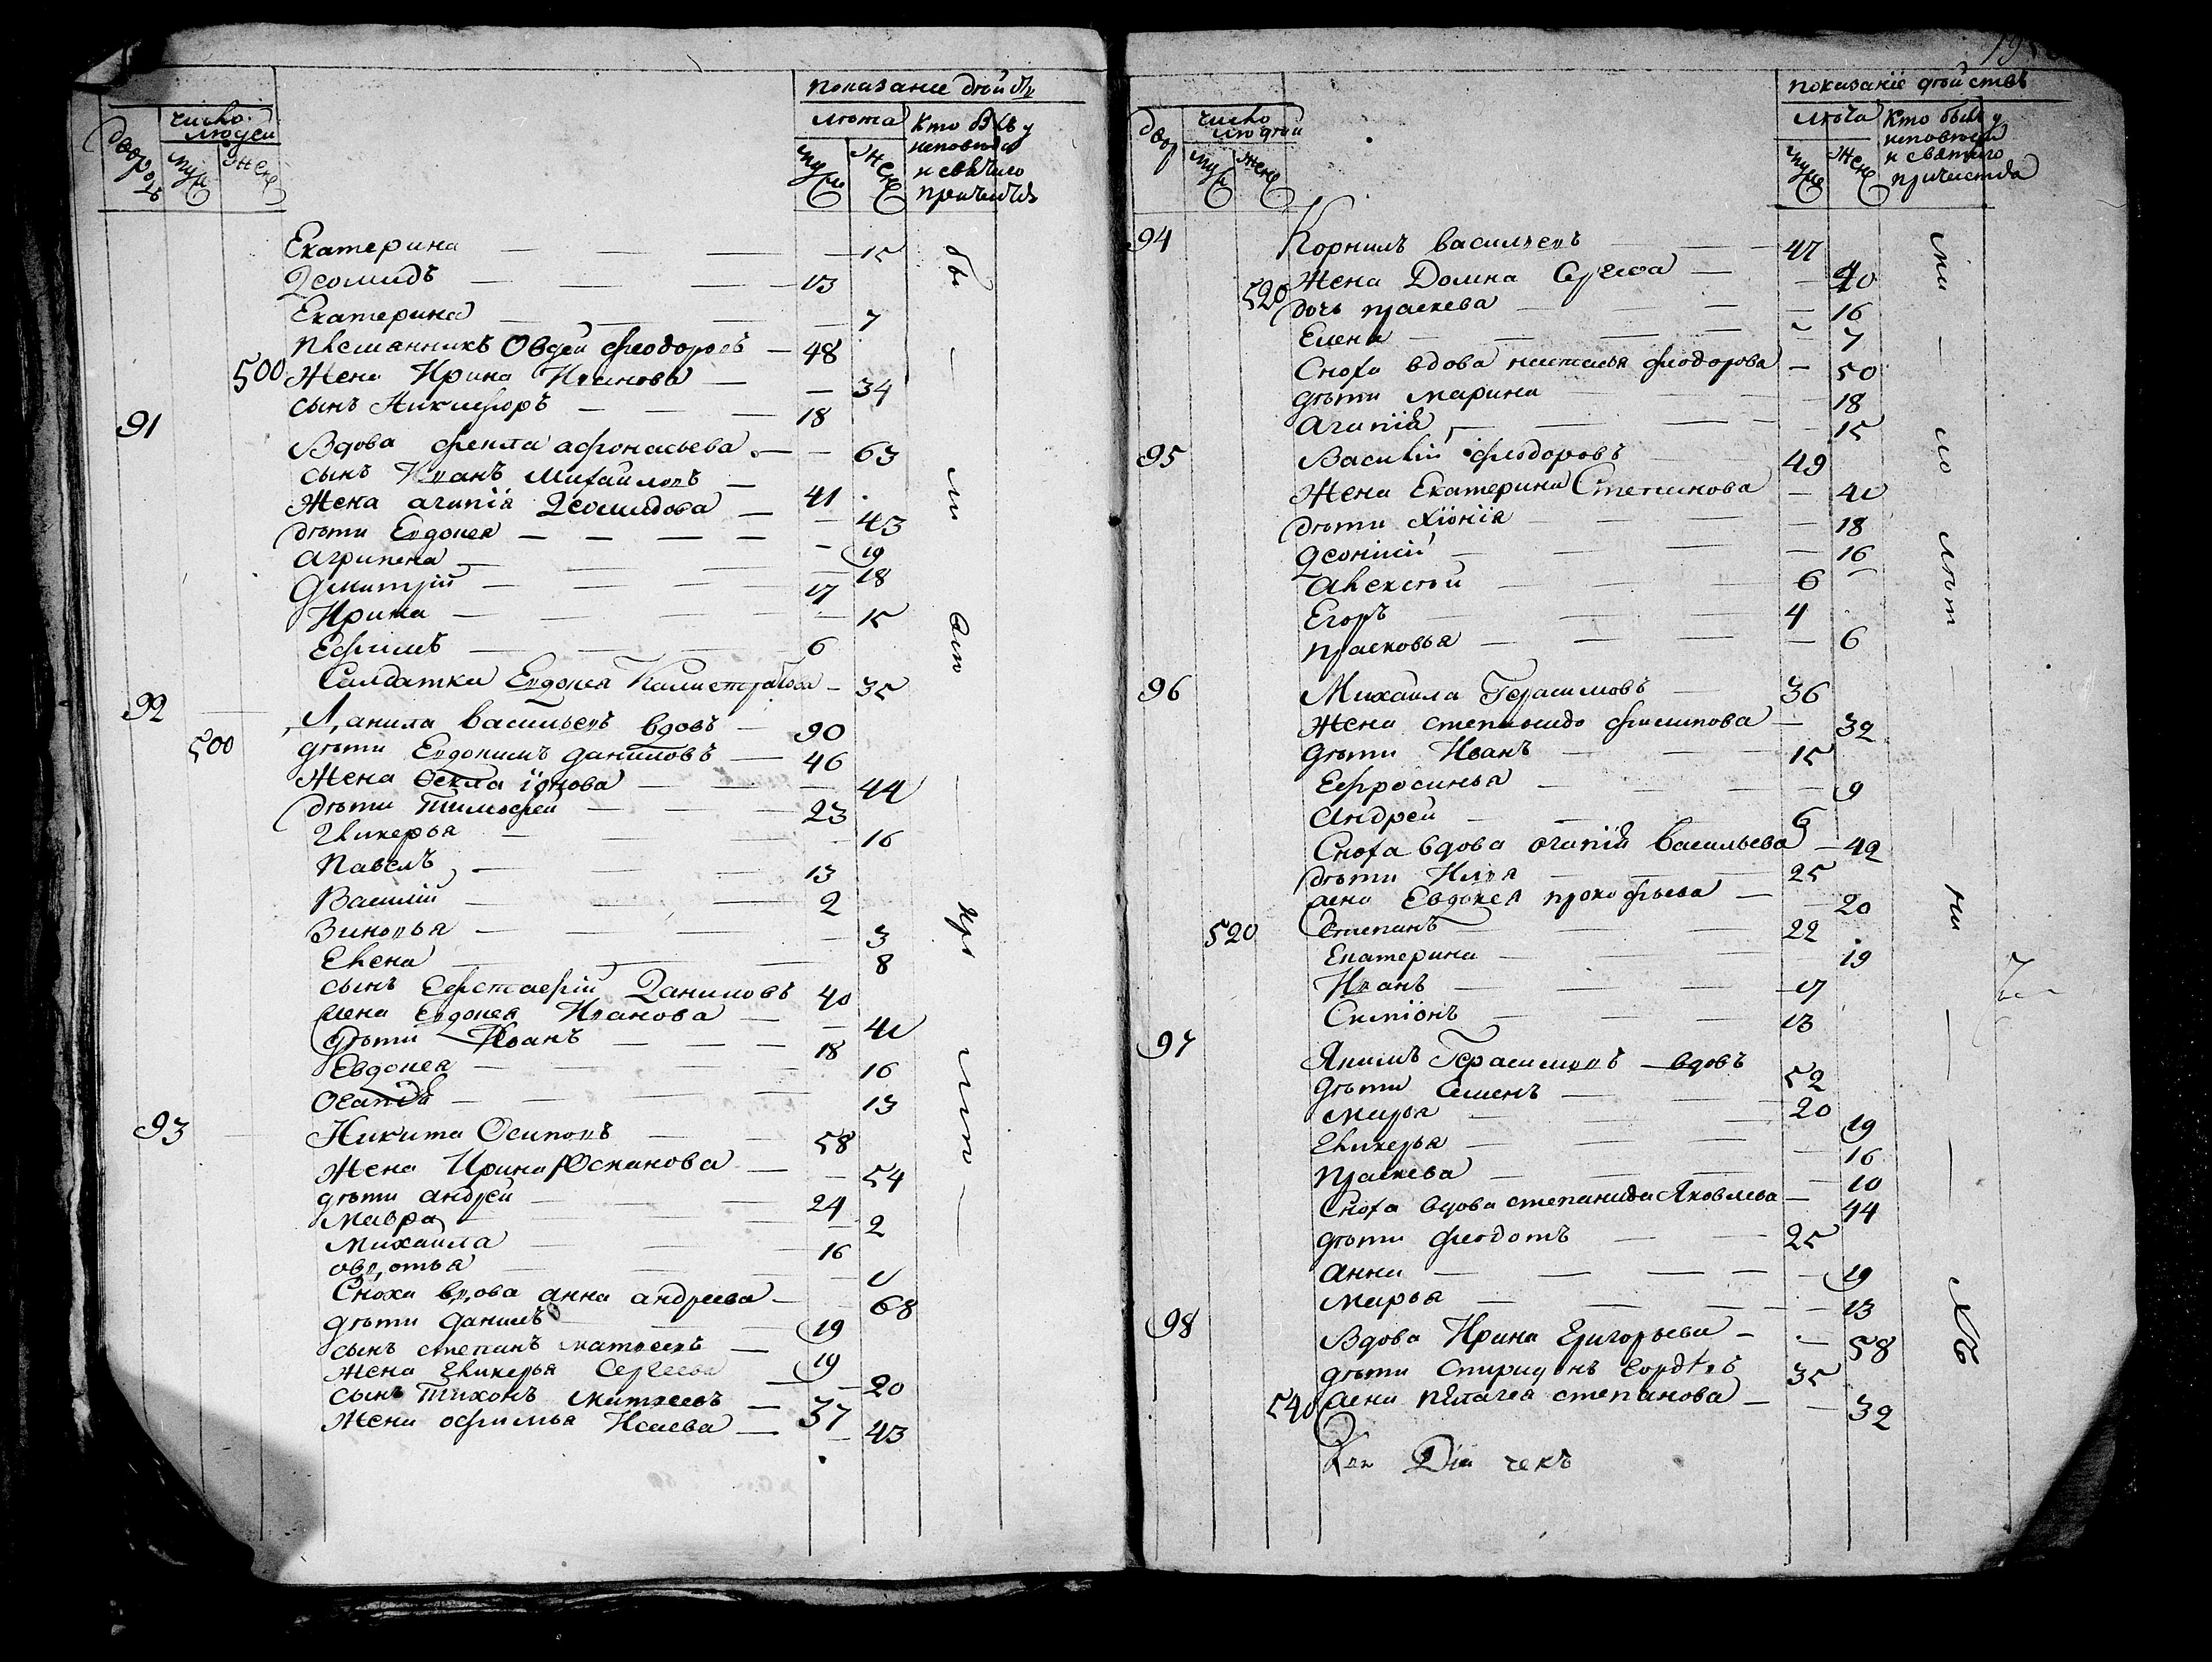 показание дѣйств
число людей
лѣта
Кто былъ у исповеди и святаго причастия
дворовъ
муж
жен
муж
жен
Екатерина — 15
Диомидъ — 13
Екатерина — 7
племянникъ Овдей феодоровъ — 48
500 Жена Ирина Иванова — 34
сынъ Никифоръ — 18
91
Вдова фекла афонасьева — 63
сынъ Иванъ Михайловъ — 41
Жена агапiя Диомидова — 43
дѣти Евдокея — 19
агрипена — 18
Дмитрiй — 17
Ирина — 15
Ефимъ — 6
Салдатка Евдокея Калистратова — 35
92
Данила васильевъ вдовъ — 90
500 дѣти Евдокимъ даниловъ — 46
Жена Фекла iонова — 44
дѣти Тимофей — 23
Гликерья — 16
Павелъ — 13
Василiй — 2
Зиновья — 3
Елена — 8
сынъ Ефстафiй Даниловъ 40
жена Евдокея Иванова — 40
дѣти Иванъ — 18
Евдокея — 16
13
93 Никита Осиповъ — 58
Жена Ирина — 54
дѣти андрей — 24
Мавра — 2
Михаила — 16
Сноха вдова анна андреева — 68
дѣти данилъ — 19
сынъ степанъ матвеевъ — 19
жена Гликерья Сергеева — 20
сынъ Тихонъ матвеевъ — 37
Жена офимья Исаева — 43
показанiе дѣйствъ
двор
число людей
лѣта
Кто былъ у исповеди и святаго причастия
муж
жен
муж
жен
94 Корнилъ васильевъ — 47
Жена Домна Сергеева — 40
520 дочь праскева — 16
Елена — 7
Сноха вдова наталья феодорова — 50
дѣти марина — 18
агапiя — 15
95 Василiй феодоровъ — 49
Жена Екатерина Степанова — 40
дѣти хiонiя — 18
16
алексѣй — 6
Егоръ — 4
прасковья — 6
96 Михаила Герасимовъ — 36
жена степанида филипова — 32
дѣти Иванъ — 15
Ефросинья — 9
андрей — 6
Сноха вдова агапiя васильева — 42
дѣти Илья — 25
жена Евдокея прокофьева — 20
520 Степанъ — 22
Екатерина — 19
Иванъ — 17
Скипiонъ — 13
97
Якимъ Герасимовъ — вдовъ 52
дѣти Семенъ — 20
марья — 19
Гликерья — 16
праскева — 10
Сноха вдова степанида Яковлева — 44
дѣти феодотъ — 25
анна — 19
марья — 13
98
Вдова Ирина Григорьева — 58
дѣти Спиридонъ — 35
540 жена пелагея степанова — 32